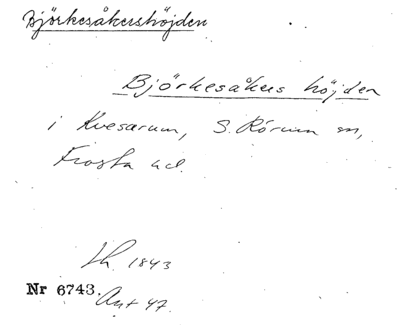 Björkesåkershöjden
Björkesåkers höjden
i Kvesarum, S. Rörum sn,
Frosta hd.
Lh. 1843
Nr 6743. Ant 47.